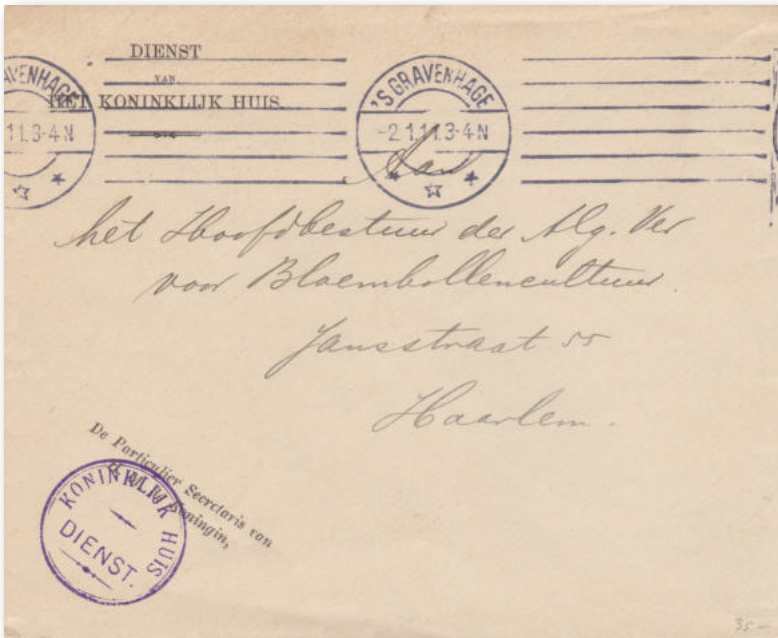 DIENST
VAN
HET KONINKLIJK HUIS.
AVENHAGE
11.3-4N
'S GRAVENHAGE
-2 1.11.3-4N
Aan
het Hoofdbestuur der Alg. Ver
voor Bloembollencultuur.
Jansstraat 55
Haarlem.
De Particulier Secretaris van
H. M. de Koningin,
KONINKLIJK HUIS
DIENST.
35-